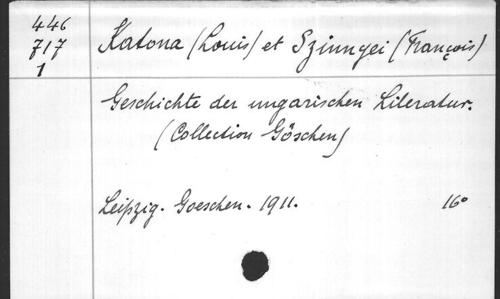 446
717
1
Katona (Louis) et Szinnyei (François)
Geschichte der ungarischen Literatur.
(Collection Göschen)
Leipzig. Goeschen. 1911. 16°